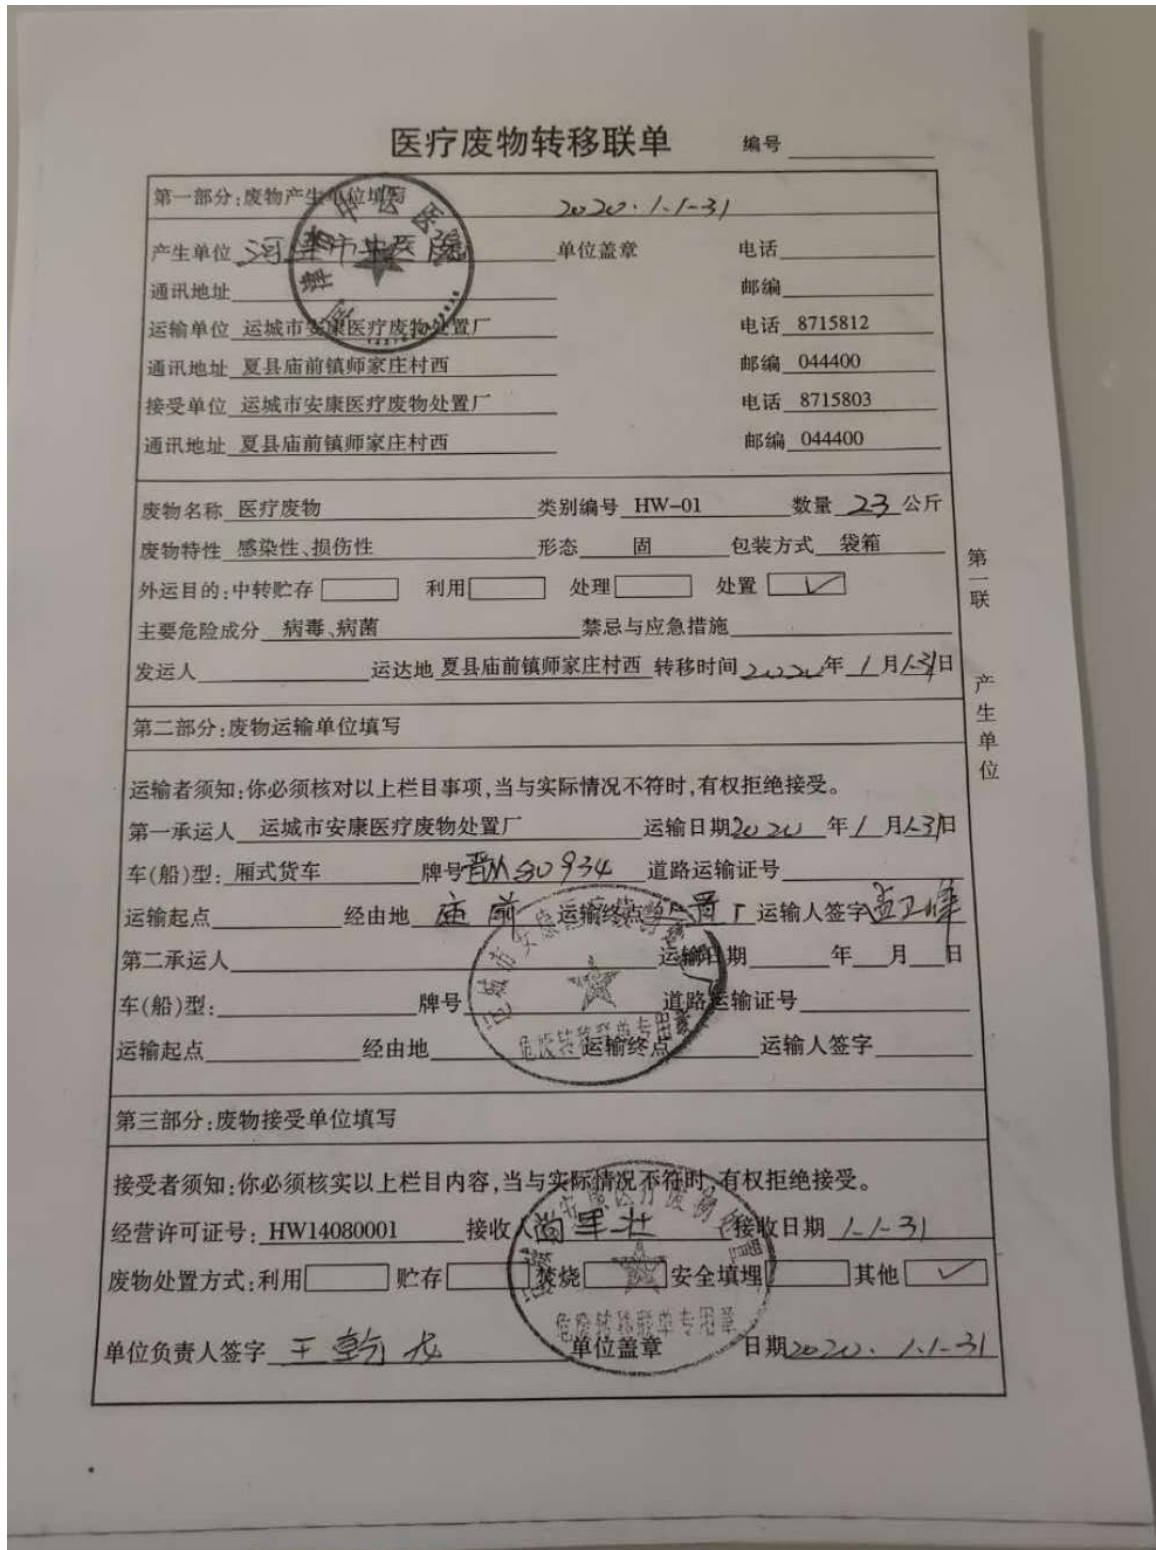 医疗废物转移联单 编号
第一部分:废物产生单位填写 2020.1.1-31
产生单位 河津市中医院 单位盖章 电话
通讯地址 邮编
运输单位 运城市安康医疗废物处置厂 电话 8715812
通讯地址 夏县庙前镇师家庄村西 邮编 044400
接受单位 运城市安康医疗废物处置厂 电话 8715803
通讯地址 夏县庙前镇师家庄村西 邮编 044400
废物名称 医疗废物 类别编号 HW-01 数量 23 公斤
废物特性 感染性、损伤性 形态 固 包装方式 袋箱
外运目的:中转贮存 利用 处理 处置 ✓
主要危险成分 病毒、病菌 禁忌与应急措施
发运人 运达地 夏县庙前镇师家庄村西 转移时间 2020年 1月1-31日
第一联 产生单位
第二部分:废物运输单位填写
运输者须知:你必须核对以上栏目事项,当与实际情况不符时,有权拒绝接受。
第一承运人 运城市安康医疗废物处置厂 运输日期2020年1月1-31日
车(船)型:厢式货车 牌号 道路运输证号
运输起点 经由地 庙前 运输终点 运输人签字 孟卫峰
第二承运人 运输日期 年 月 日
车(船)型: 牌号 道路运输证号
运输起点 经由地 运输终点 运输人签字
危废转移联单专用章
第三部分:废物接受单位填写
接受者须知:你必须核实以上栏目内容,当与实际情况不符时,有权拒绝接受。
经营许可证号:HW14080001 接收人 接收日期 1.1-31
废物处置方式:利用 贮存 焚烧 安全填埋 其他 ✓
危废转移联单专用章
单位负责人签字 单位盖章 日期2020.1.1-31